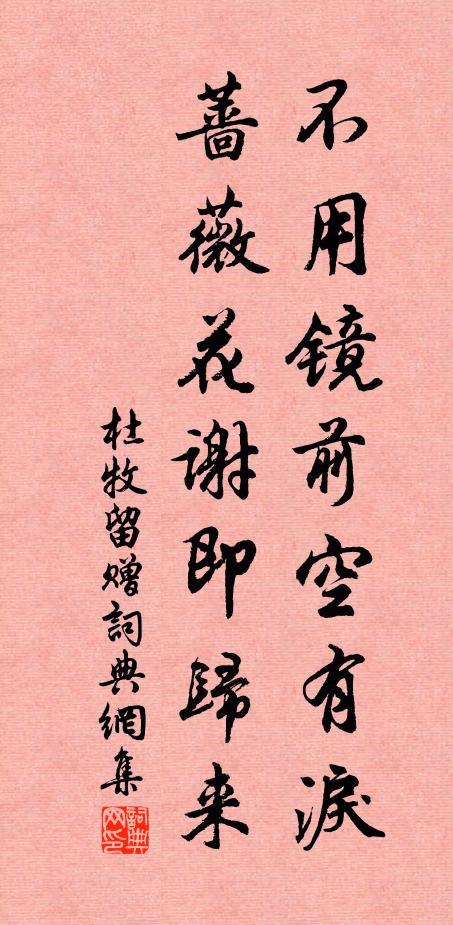 不用镜前空有淚
薔薇花谢即歸来
杜牧留赠詞典網集
詞典网印